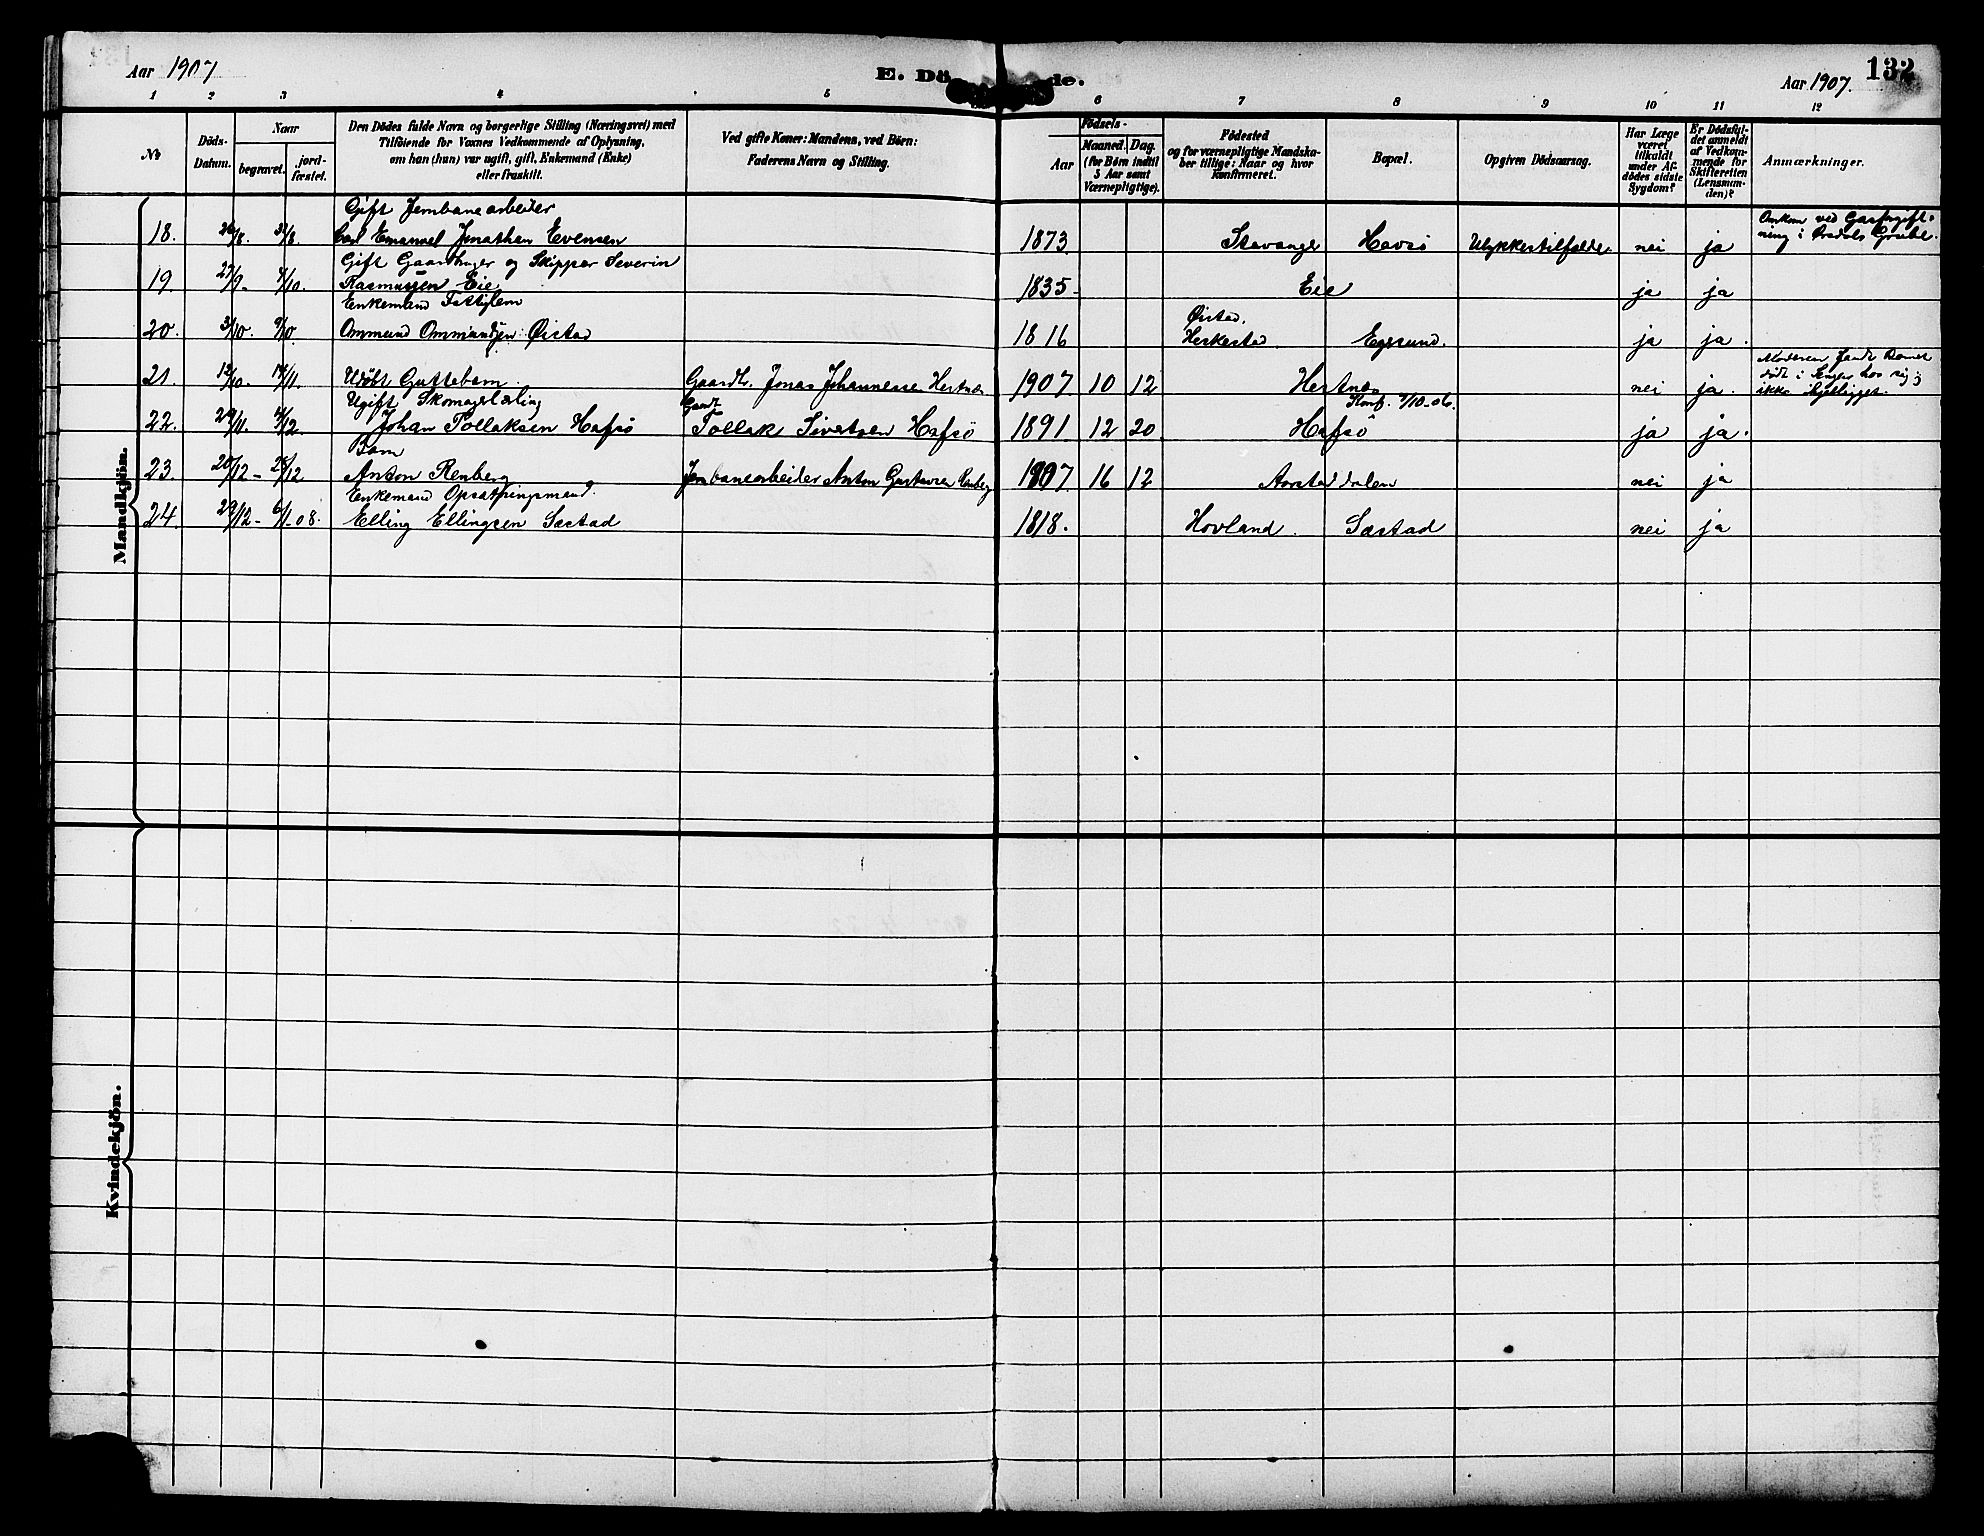 Aar 1907
E. Dö de.
132
Aar 1907.
1 2 3 4 5 6 7 8 9 10 11 12
No
Döds-
Datum.
Naar
begravet.
jord-
fæstet.
Den Dödes fulde Navn og borgerlige Stilling (Næringsvei) med
Tilföiende for Voxnes Vedkommende af Oplysning,
om han (hun) var ugift, gift, Enkemand (Enke)
eller fraskilt.
Ved gifte Koner: Mandens, ved Börn:
Faderens Navn og Stilling.
Födsels-
Aar
Maaned. Dag.
(for Börn indtil
5 Aar samt
Værnepligtige).
Födested
og for værnepligtige Mandska-
ber tillige: Naar og hvor
konfirmeret.
Bopæl.
Opgiven Dödsaarsag.
Har Læge
været
tilkaldt
under Af-
dödes sidste
Sygdom?
Er Dödsfal-
det anmeldt
af Vedkom-
mende for
Skifteretten
(Lensman-
den)?
Anmærkninger.
Mandkjön.
Gift Jernbanearbeider
18. 26/8. 31/8. Carl Emanuel Jonathan Evensen 1873 Stavanger Havsö Ulykkestilfælde nei ja
Omkom ved Gasforgift-
ning i Grube.
Gift Gaardbruger og Skipper Severin
19. 27/9- /10. Rasmussen Eie 1835- Eie ja ja
Enkemand Fattiglem
20. 3/10. 9/10. Ommund Ommundsen Öistad 1816 Öistad, Heskestad Egersund. ja ja.
21. 12/10. 14/11. Udöbt Guttebarn. Gaardb. Jonas Johannesse Hestnæs 1907 10 12 Hestnæs nei ja.
Moderen fandt Barnet
dödt i Sengen hos sig;
ikke ihjelligget.
Ugift Skomagerlærling
22. 29/11. 4/12. Johan Tollaksen Hafsö Gaardb. Tollak Sivertsen Hafsö 1891 12 20 Hafsö Konf. 7/10-06. ja ja.
Barn
23. 20/12- 28/12 Anton Renberg Jernbanearbeider Anton Gustavsen Renberg 1907 16 12 Aarstaddalen nei ja
Enkemand Opsætningsmand.
24. 29/12- 6/1-08. Elling Ellingsen Sæstad 1818. Hovland. Sæstad nei ja
Kvindekjön.